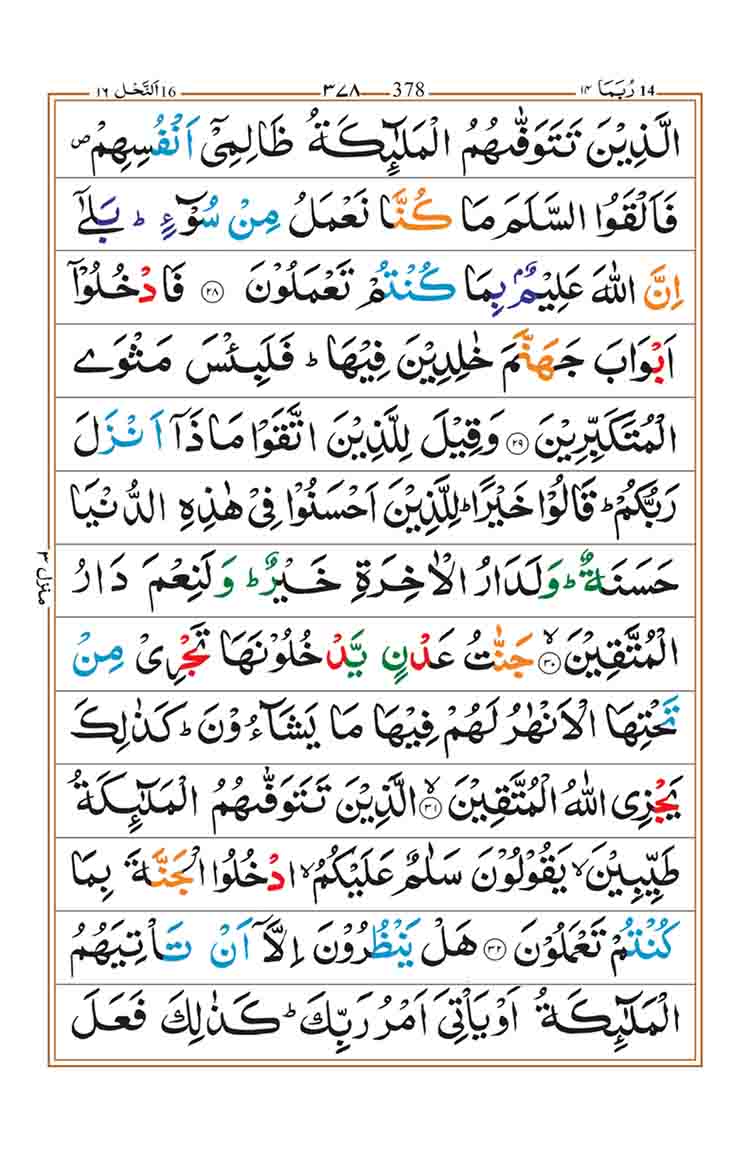 14 رُبَمَا ۱۴ 378 ۳۷۸ 16 اَلنَّحْل ۱۶
الَّذِيْنَ تَتَوَفّٰىهُمُ الْمَلٰٓئِكَةُ ظَالِمِيْٓ اَنْفُسِهِمْ ص
فَاَلْقَوُا السَّلَمَ مَا كُنَّا نَعْمَلُ مِنْ سُوْٓءٍ ؕ بَلٰٓى
اِنَّ اللّٰهَ عَلِيْمٌۢ بِمَا كُنْتُمْ تَعْمَلُوْنَ ۲۸ فَادْخُلُوْٓا
اَبْوَابَ جَهَنَّمَ خٰلِدِيْنَ فِيْهَا ؕ فَلَبِئْسَ مَثْوَے
الْمُتَكَبِّرِيْنَ ۲۹ وَقِيْلَ لِلَّذِيْنَ اتَّقَوْا مَاذَآ اَنْزَلَ
رَبُّكُمْ ؕ قَالُوْا خَيْرًا ؕ لِلَّذِيْنَ اَحْسَنُوْا فِيْ هٰذِهِ الدُّنْيَا
حَسَنَةٌ ؕ وَلَدَارُ الْاٰخِرَةِ خَيْرٌ ؕ وَلَنِعْمَ دَارُ
الْمُتَّقِيْنَ ۙ ۳۰ جَنّٰتُ عَدْنٍ يَّدْخُلُوْنَهَا تَجْرِيْ مِنْ
تَحْتِهَا الْاَنْهٰرُ لَهُمْ فِيْهَا مَا يَشَآءُوْنَ ؕ كَذٰلِكَ
يَجْزِي اللّٰهُ الْمُتَّقِيْنَ ۙ ۳۱ الَّذِيْنَ تَتَوَفّٰىهُمُ الْمَلٰٓئِكَةُ
طَيِّبِيْنَ ۙ يَقُوْلُوْنَ سَلٰمٌ عَلَيْكُمُ ۙ ادْخُلُوا الْجَنَّةَ بِمَا
كُنْتُمْ تَعْمَلُوْنَ ۳۲ هَلْ يَنْظُرُوْنَ اِلَّآ اَنْ تَاْتِيَهُمُ
الْمَلٰٓئِكَةُ اَوْ يَاْتِيَ اَمْرُ رَبِّكَ ؕ كَذٰلِكَ فَعَلَ
منزل ۳